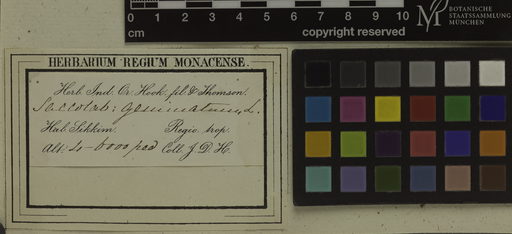 0 1 2 3 4 5 6 7 8 9 10
cm
copyright reserved
BOTANISCHE
STAATSSAMMLUNG
MÜNCHEN
HERBARIUM REGIUM MONACENSE.
Herb. Ind. Or. Hook. fil. & Thomson.
Hab. Sikkim. Regio trop.
Alt. 4-6000 ped Coll. J. D. H.